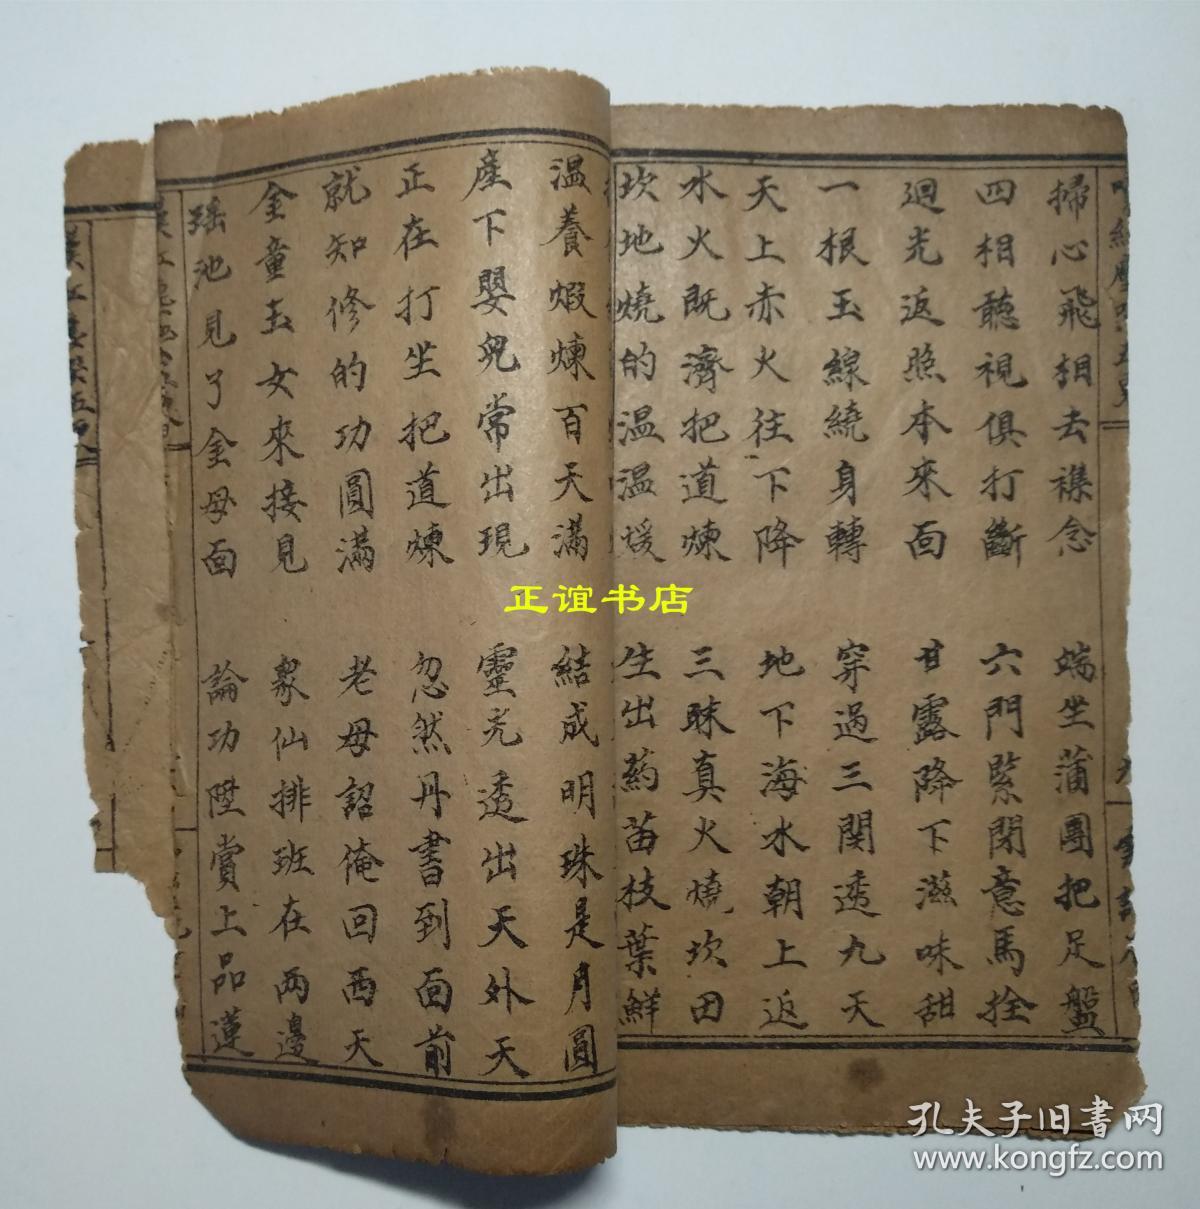 掃心飛相去襍念 端坐蒲團把足盤
四相聽視俱打斷 六門緊閉意馬拴
迴光返照本來面 甘露降下滋味甜
一根玉線繞身轉 穿過三関透九天
天上赤火往下降 地下海水朝上返
水火既濟把道煉 三昧真火燒坎田
坎地燒的温温煖 生出葯苗枝葉鮮
温養煅煉百天滿 結成明珠是月圓
產下嬰兒常出現 靈光透出天外天
正在打坐把道煉 忽然丹書到面前
就知修的功圓滿 老母詔俺回西天
金童玉女來接見 衆仙排班在两邊
瑶池見了金母面 論功陞賞上品蓮
正谊书店
孔夫子旧书网
www.kongfz.com